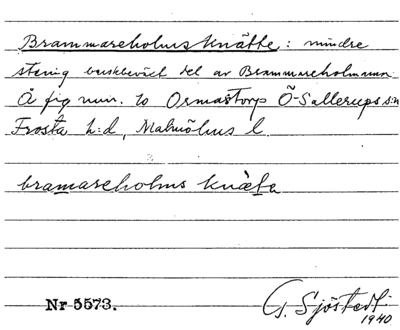 Brammareholms knätte: mindre
stenig buskbevuxt del av Brammareholmarna.
Å fig. num. 10 Ormastorp Ö-Sallerups s:n
Frosta h:d, Malmöhus l.
bramareholms knäta
Nr 5573.
G. Sjöstedt.
1940